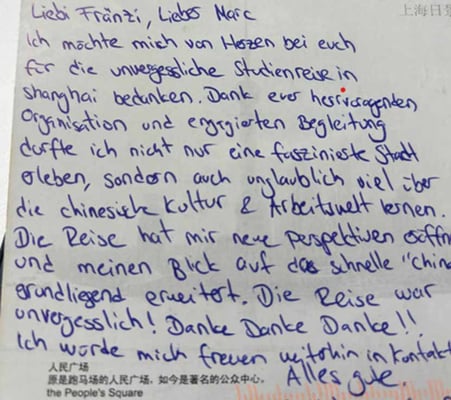 Liebi Fränzi, Liebe Marc
上海日景
Ich möchte mich von Herzen bei euch
für die unvergessliche Studienreise in
Shanghai bedanken. Dank eurer hervorragenden
Organisation und engagierten Begleitung
durfte ich nicht nur eine faszinierte Stadt
erleben, sondern auch unglaublich viel über
die chinesische Kultur & Arbeitswelt lernen.
Die Reise hat mir neue Perspektiven eröffn
und meinen Blick auf das schnelle "Chin
grundliegend erweitert. Die Reise war
unvergesslich! Danke Danke Danke!!
Ich würde mich freuen weiterhin in Kontakt
Alles gute.
人民广场
原是跑马场的人民广场，如今是著名的公众中心。
the People's Square